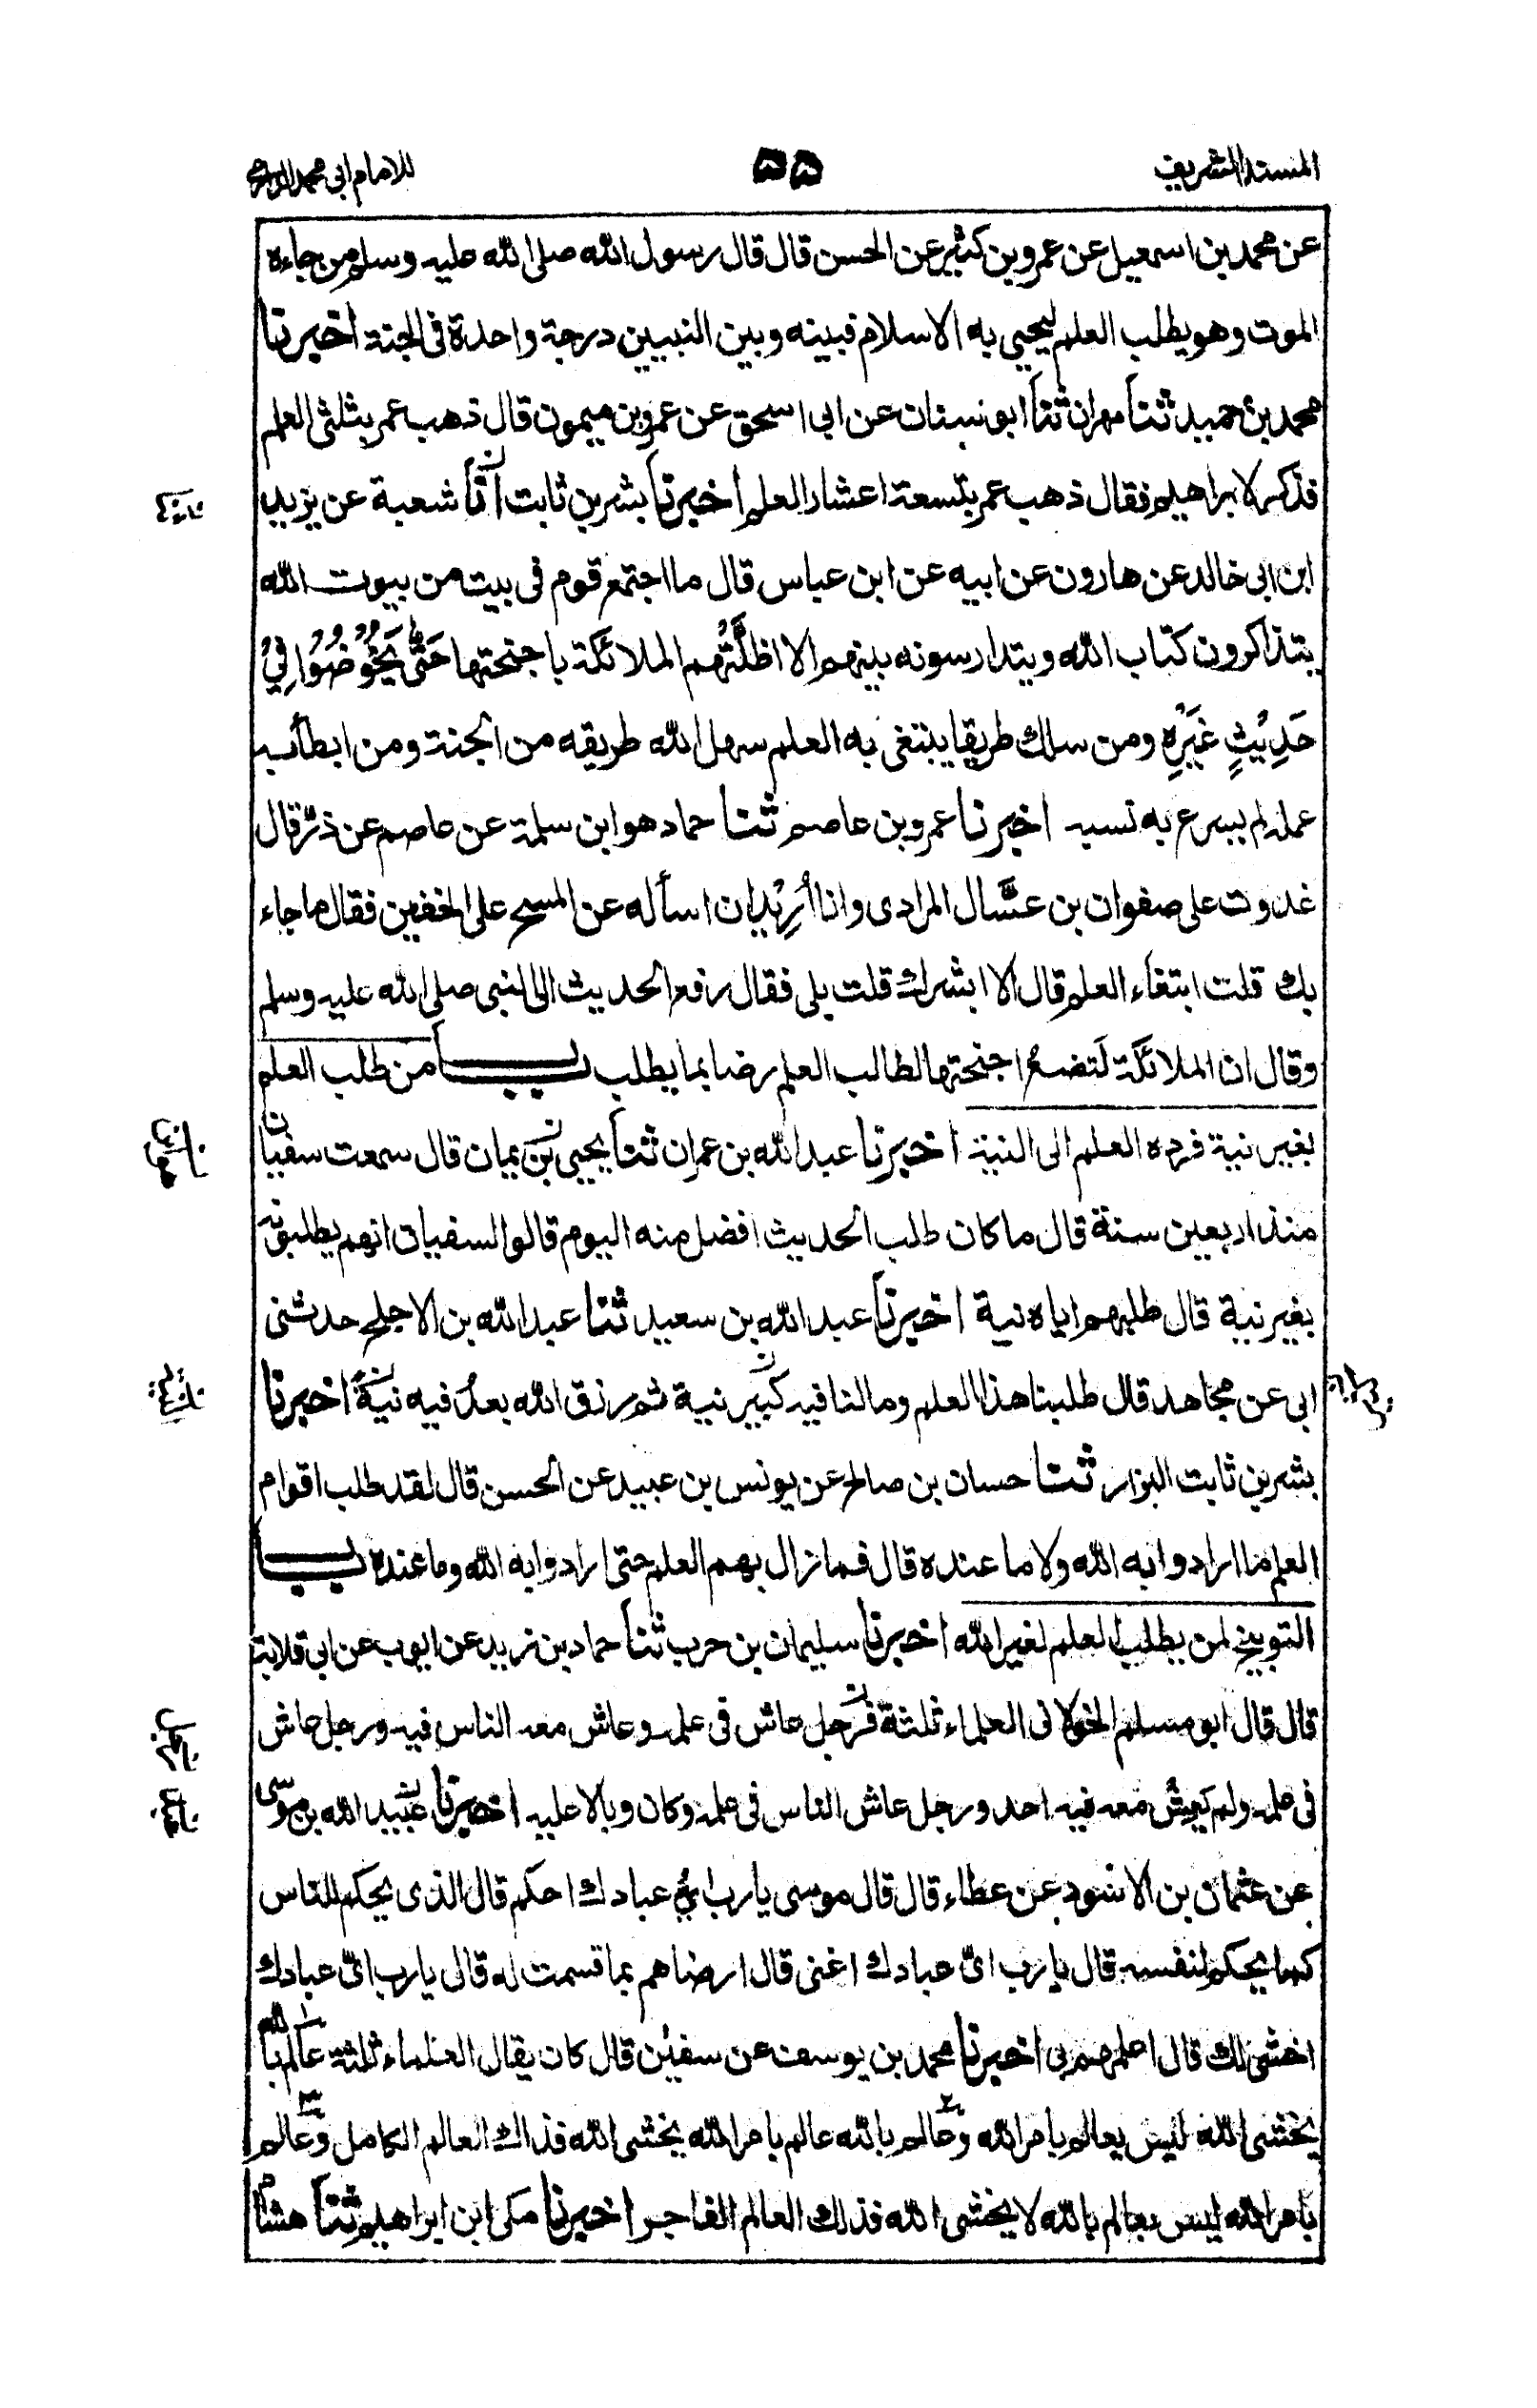 المسند الشريف
٥٥
للامام ابى محمد الدارمى
عن محمد بن اسمعيل عن عمرو بن كثير عن الحسن قال قال رسول الله صلى الله عليه وسلم من جاءه
الموت وهو يطلب العلم ليحيى به الاسلام فبينه وبين النبيين درجة واحدة فى الجنة اخبرنا
محمد بن حميد ثنا مهران ثنا ابو سنان عن ابى اسحق عن عمرو بن ميمون قال ذهب عمر بثلثى العلم
فذكر لابراهيم فقال ذهب عمر بتسعة اعشار العلم اخبرنا بشر بن ثابت انا شعبة عن يزيد
ابن ابى خالد عن هارون عن ابيه عن ابن عباس قال ما اجتمع قوم فى بيت من بيوت الله
يتذاكرون كتاب الله ويتدارسونه بينهم الا اظلَّتْهُم الملائكة باجنحتها حَتّٰى يَخُوْضُوْا فِيْ
حَدِيْثٍ غَيْرِه ومن سلك طريقا يبتغى به العلم سهل الله طريقه من الجنة ومن ابطأ به
عمله لم يسرع به نسبه اخبرنا عمرو بن عاصم ثنا حماد هو ابن سلمة عن عاصم عن زر قال
غدوت على صفوان بن عسَّال المرادى وانا اُرِيْدُ ان اسأله عن المسح على الخفين فقال ما جاء
بك قلت ابتغاء العلم قال الا ابشرك قلت بلى فقال رفع الحديث الى النبى صلى الله عليه وسلم
وقال ان الملائكة لَتضعُ اجنحتها لطالب العلم رضا بما يطلب باب من طلب العلم
بغير نية فرده العلم الى النية اخبرنا عبد الله بن عمران ثنا يحيى بن يمان قال سمعت سفيان
منذ اربعين سنة قال ما كان طلب الحديث افضل منه اليوم قالوا لسفيان انهم يطلبونه
بغير نية قال طلبهم اياه نية اخبرنا عبد الله بن سعيد ثنا عبد الله بن الاجلح حدثنى
ابى عن مجاهد قال طلبنا هذا العلم وما لنا فيه كبير نية ثم رزق الله بعدُ فيه نيةً اخبرنا
بشر بن ثابت البزار ثنا حسان بن صالح عن يونس بن عبيد عن الحسن قال لقد طلب اقوام
العلم ما ارادوا به الله ولا ما عنده قال فما زال بهم العلم حتى ارادوا به الله وما عنده باب
التوبيخ لمن يطلب العلم لغير الله اخبرنا سليمان بن حرب ثنا حماد بن زيد عن ايوب عن ابى قلابة
قال قال ابو مسلم الخولانى العلماء ثلثة فرجل عاش فى علمه وعاش معه الناس فيه ورجل عاش
فى علمه ولم يَعِشْ معه فيه احد ورجل عاش الناس فى علمه وكان وبالا عليه اخبرنا عبيد الله بن موسى
عن عثمان بن الاسود عن عطاء قال قال موسى يا رب اىُّ عبادك احكم قال الذى يحكم للناس
كما يحكم لنفسه قال يا رب اىّ عبادك اغنى قال ارضاهم بما قسمت له قال يا رب اىّ عبادك
اخشى لك قال اعلمهم بى اخبرنا محمد بن يوسف عن سفيٰن قال كان يقال العلماء ثلثة عالم بالله
يخشى الله ليس بعالم بامر الله وعالم بالله عالم بامر الله يخشى الله فذاك العالم الكامل وعالم
بامر الله ليس بعالم بالله لا يخشى الله فذلك العالم الفاجر اخبرنا مكى ابن ابراهيم ثنا هشام